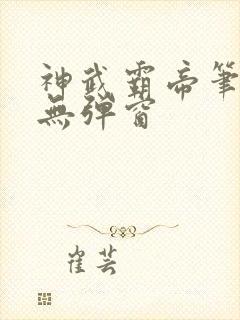 神武霸帝筆
無彈窗
崔芸